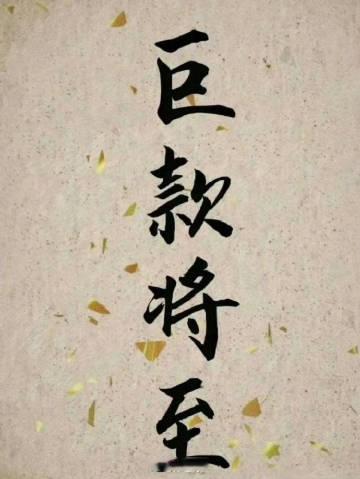 巨款将至